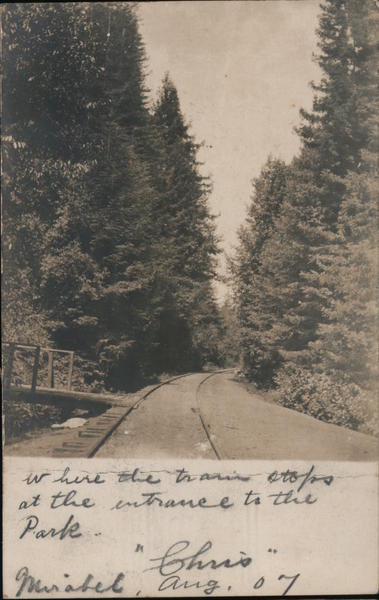 where the train stops
at the entrance to the
Park.
"Chris"
Mirabel, Aug. 07